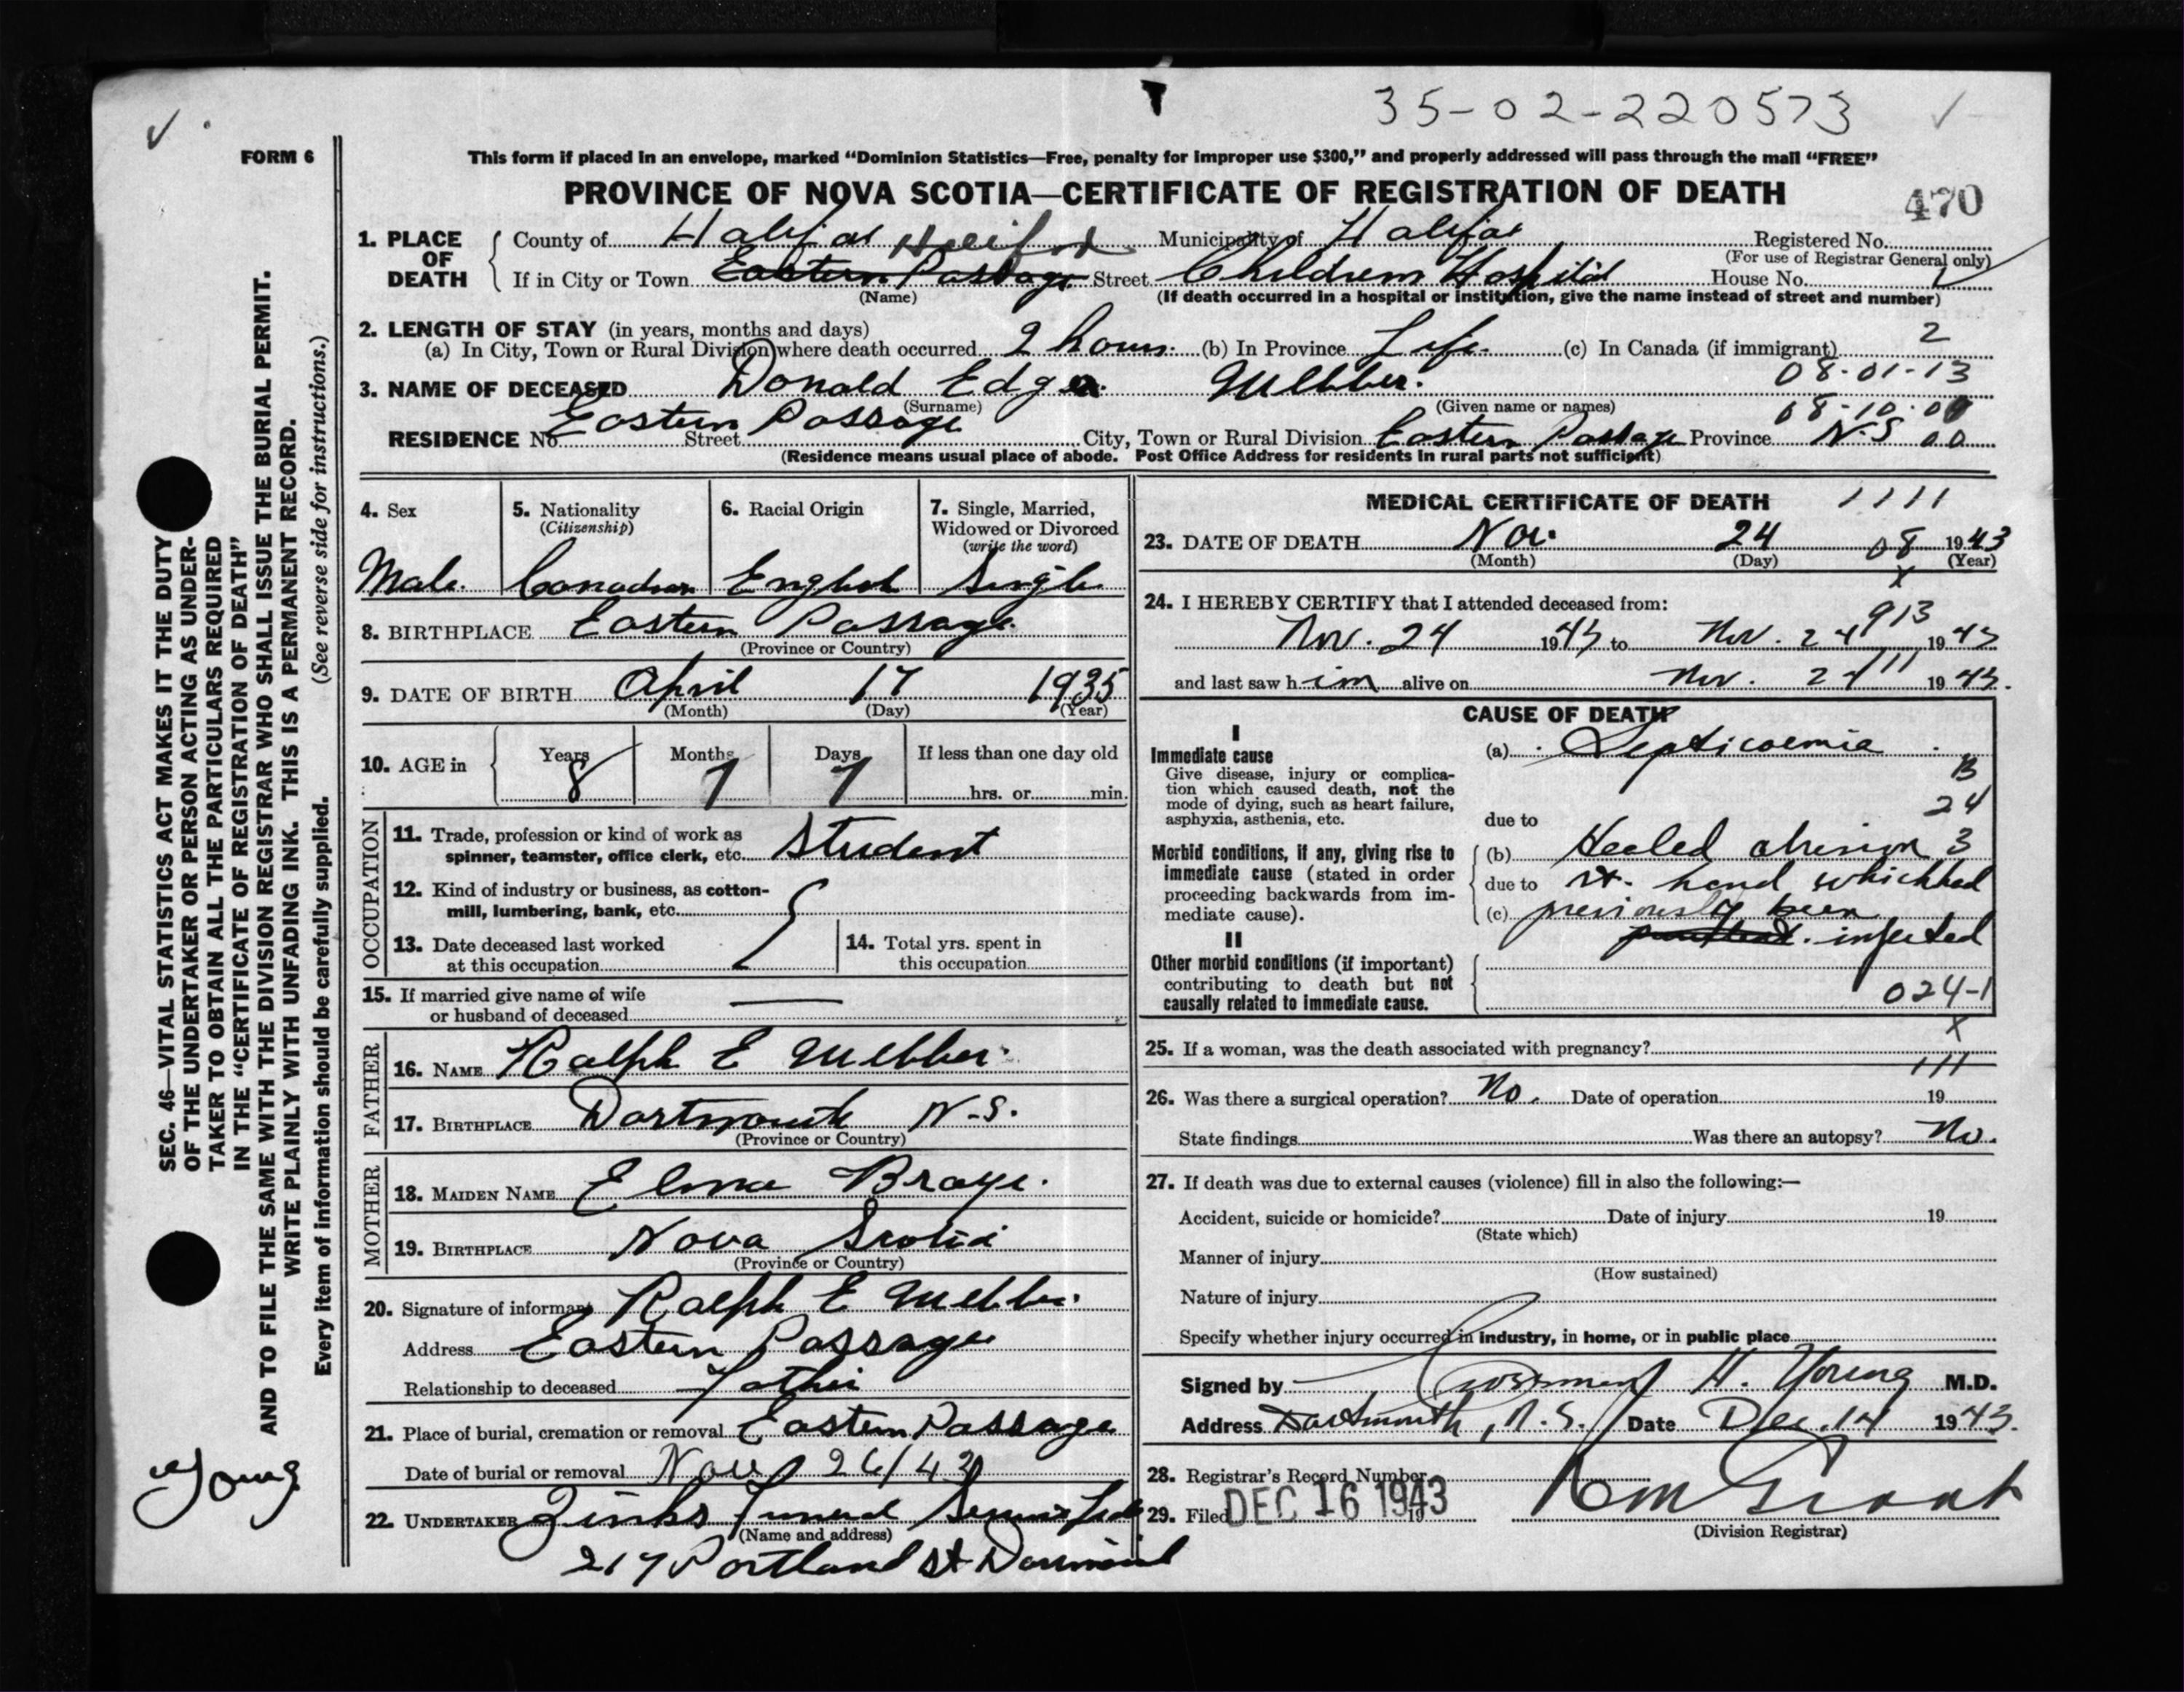 35-02-220573
FORM 6
This form if placed in an envelope, marked “Dominion Statistics—Free, penalty for improper use $300,” and properly addressed will pass through the mail “FREE”
PROVINCE OF NOVA SCOTIA—CERTIFICATE OF REGISTRATION OF DEATH
470
1. PLACE OF DEATH
County of Halifax Halifax Municipality of Halifax Registered No.
(For use of Registrar General only)
If in City or Town Eastern Passage Street Childrens Hospital House No.
(Name)
(If death occurred in a hospital or institution, give the name instead of street and number)
2. LENGTH OF STAY (in years, months and days)
(a) In City, Town or Rural Division where death occurred 2 hours. (b) In Province Life. (c) In Canada (if immigrant) 2
08-01-13
3. NAME OF DECEASED Donald Edgar Webber.
(Surname) (Given name or names)
08-10-00
RESIDENCE No. Eastern Passage Street City, Town or Rural Division Eastern Passage Province N.S 00
(Residence means usual place of abode. Post Office Address for residents in rural parts not sufficient)
4. Sex
Male.
5. Nationality
(Citizenship)
Canadian
6. Racial Origin
English
7. Single, Married,
Widowed or Divorced
(write the word)
Single
8. BIRTHPLACE Eastern Passage.
(Province or Country)
9. DATE OF BIRTH April 17 1935
(Month) (Day) (Year)
10. AGE in
Years Months Days If less than one day old
8 7 7 hrs. or min.
OCCUPATION
11. Trade, profession or kind of work as
spinner, teamster, office clerk, etc. Student
12. Kind of industry or business, as cotton-
mill, lumbering, bank, etc.
13. Date deceased last worked
at this occupation
14. Total yrs. spent in
this occupation
15. If married give name of wife
or husband of deceased
FATHER
16. NAME Ralph E Webber.
17. BIRTHPLACE Dartmouth N.S.
(Province or Country)
MOTHER
18. MAIDEN NAME Elma Braye.
19. BIRTHPLACE Nova Scotia
(Province or Country)
20. Signature of informant Ralph E Webber.
Address Eastern Passage
Relationship to deceased Father
21. Place of burial, cremation or removal Eastern Passage
Date of burial or removal Nov 26/43
22. UNDERTAKER Zinks Funeral Service Ltd
(Name and address)
217 Portland St
MEDICAL CERTIFICATE OF DEATH
1111
23. DATE OF DEATH Nov. 24 08 1943
(Month) (Day) (Year)
x
24. I HEREBY CERTIFY that I attended deceased from:
913
Nov. 24 1943 to Nov. 24 1943
and last saw him alive on Nov. 24 1943.
CAUSE OF DEATH
I
Immediate cause
Give disease, injury or complica-
tion which caused death, not the
mode of dying, such as heart failure,
asphyxia, asthenia, etc.
(a) Septicaemia
B
24
due to
Morbid conditions, if any, giving rise to
immediate cause (stated in order
proceeding backwards from im-
mediate cause).
(b) Healed abrasion 3
due to rt. hand which had
(c) previously been
infected
II
Other morbid conditions (if important)
contributing to death but not
causally related to immediate cause.
024-1
x
25. If a woman, was the death associated with pregnancy?
111
26. Was there a surgical operation? No. Date of operation 19
State findings Was there an autopsy? No.
27. If death was due to external causes (violence) fill in also the following:—
Accident, suicide or homicide? Date of injury 19
(State which)
Manner of injury
(How sustained)
Nature of injury
Specify whether injury occurred in industry, in home, or in public place
Signed by H. Young M.D.
Address Dartmouth, N.S. Date Dec. 14 1943.
28. Registrar's Record Number
29. Filed DEC 16 1943 19
(Division Registrar)
SEC. 46—VITAL STATISTICS ACT MAKES IT THE DUTY
OF THE UNDERTAKER OR PERSON ACTING AS UNDER-
TAKER TO OBTAIN ALL THE PARTICULARS REQUIRED
IN THE “CERTIFICATE OF REGISTRATION OF DEATH”
AND TO FILE THE SAME WITH THE DIVISION REGISTRAR WHO SHALL ISSUE THE BURIAL PERMIT.
WRITE PLAINLY WITH UNFADING INK. THIS IS A PERMANENT RECORD.
Every item of information should be carefully supplied. (See reverse side for instructions.)
Young